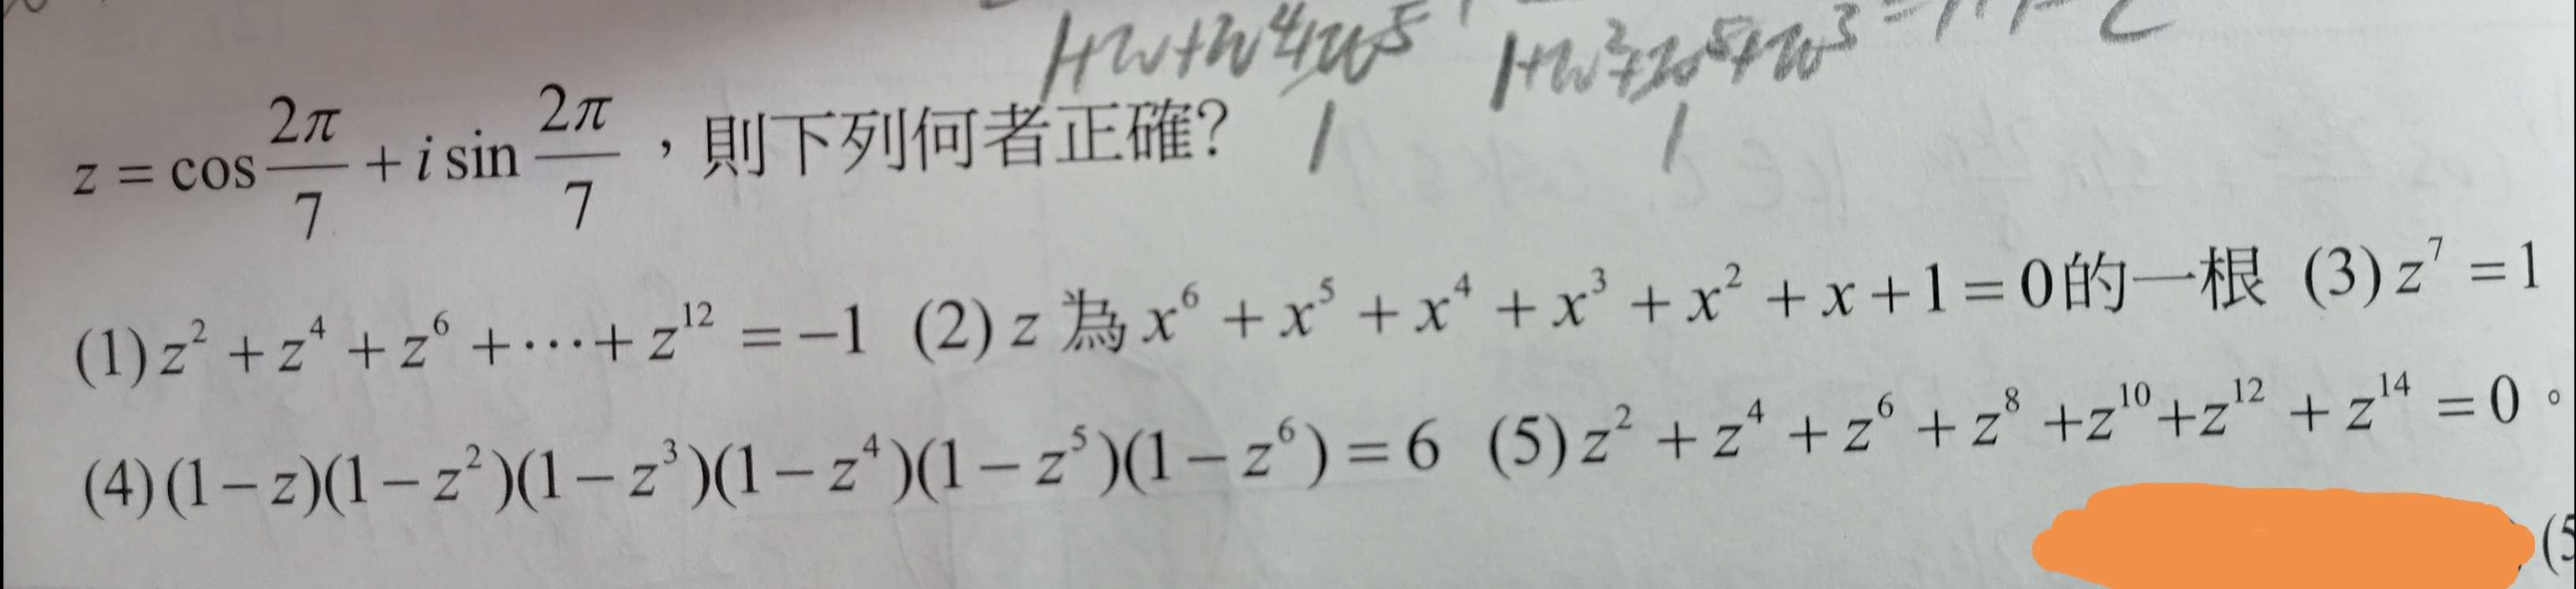 1+w+w⁴+w⁵ 1+w²+w⁵+w³
z = cos 2π/7 + i sin 2π/7，則下列何者正確?
1 1
(1) z² + z⁴ + z⁶ + ⋯ + z¹² = −1 (2) z 為 x⁶ + x⁵ + x⁴ + x³ + x² + x + 1 = 0 的一根 (3) z⁷ = 1
(4) (1 − z)(1 − z²)(1 − z³)(1 − z⁴)(1 − z⁵)(1 − z⁶) = 6 (5) z² + z⁴ + z⁶ + z⁸ + z¹⁰ + z¹² + z¹⁴ = 0。
(5